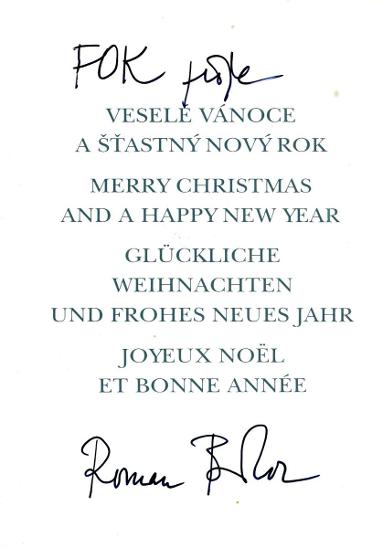 FOK přeje
VESELÉ VÁNOCE
A ŠŤASTNÝ NOVÝ ROK
MERRY CHRISTMAS
AND A HAPPY NEW YEAR
GLÜCKLICHE
WEIHNACHTEN
UND FROHES NEUES JAHR
JOYEUX NOËL
ET BONNE ANNÉE
Roman